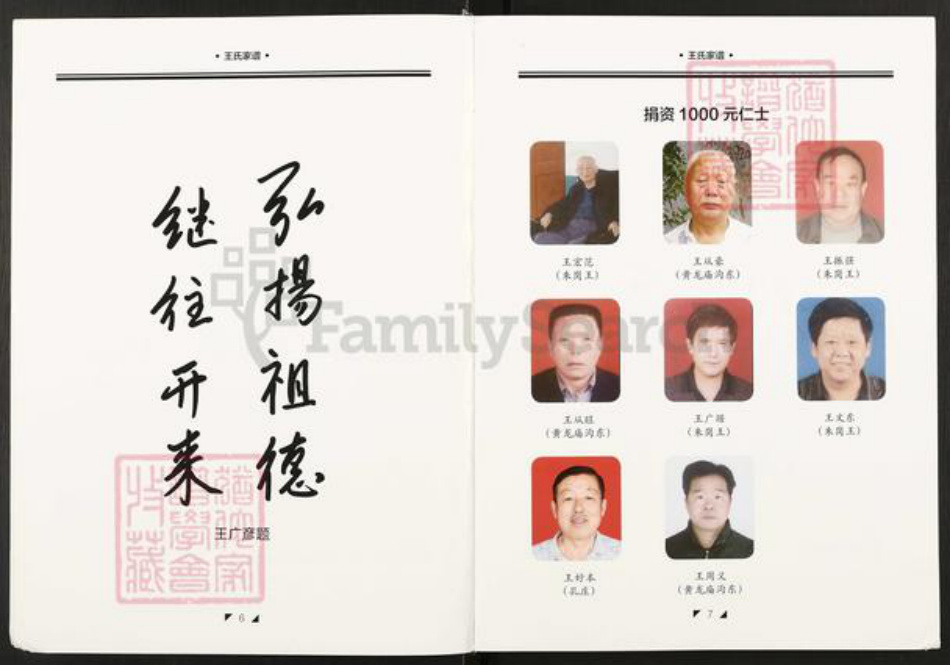 • 王氏家谱 •
弘揚祖德
继往开来
王广彦题
6
• 王氏家谱 •
捐资 1000 元仁士
王宏范
(朱岗王)
王从豪
(黄龙庙沟东)
王振强
(朱岗王)
王从旺
(黄龙庙沟东)
王广
(朱岗王)
王文东
(朱岗王)
王好本
(孔庄)
王周义
(黄龙庙沟东)
7
FamilySearch